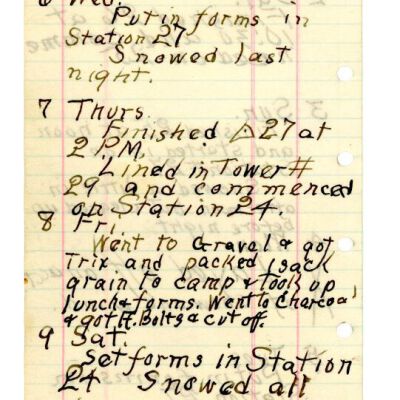 6 Wed.
Put in forms in
Station 27
Snowed last
night.
7 Thurs.
Finished △ 27 at
2 PM.
Lined in Tower #
29 and commenced
on Station 24.
8 Fri.
Went to Gravel & got
Trix and packed 1 sack
grain to camp & took up
lunch & forms. Went to Charcoal
& got ft. Bolts & cut off.
9 Sat.
Set forms in Station
24 Snowed all